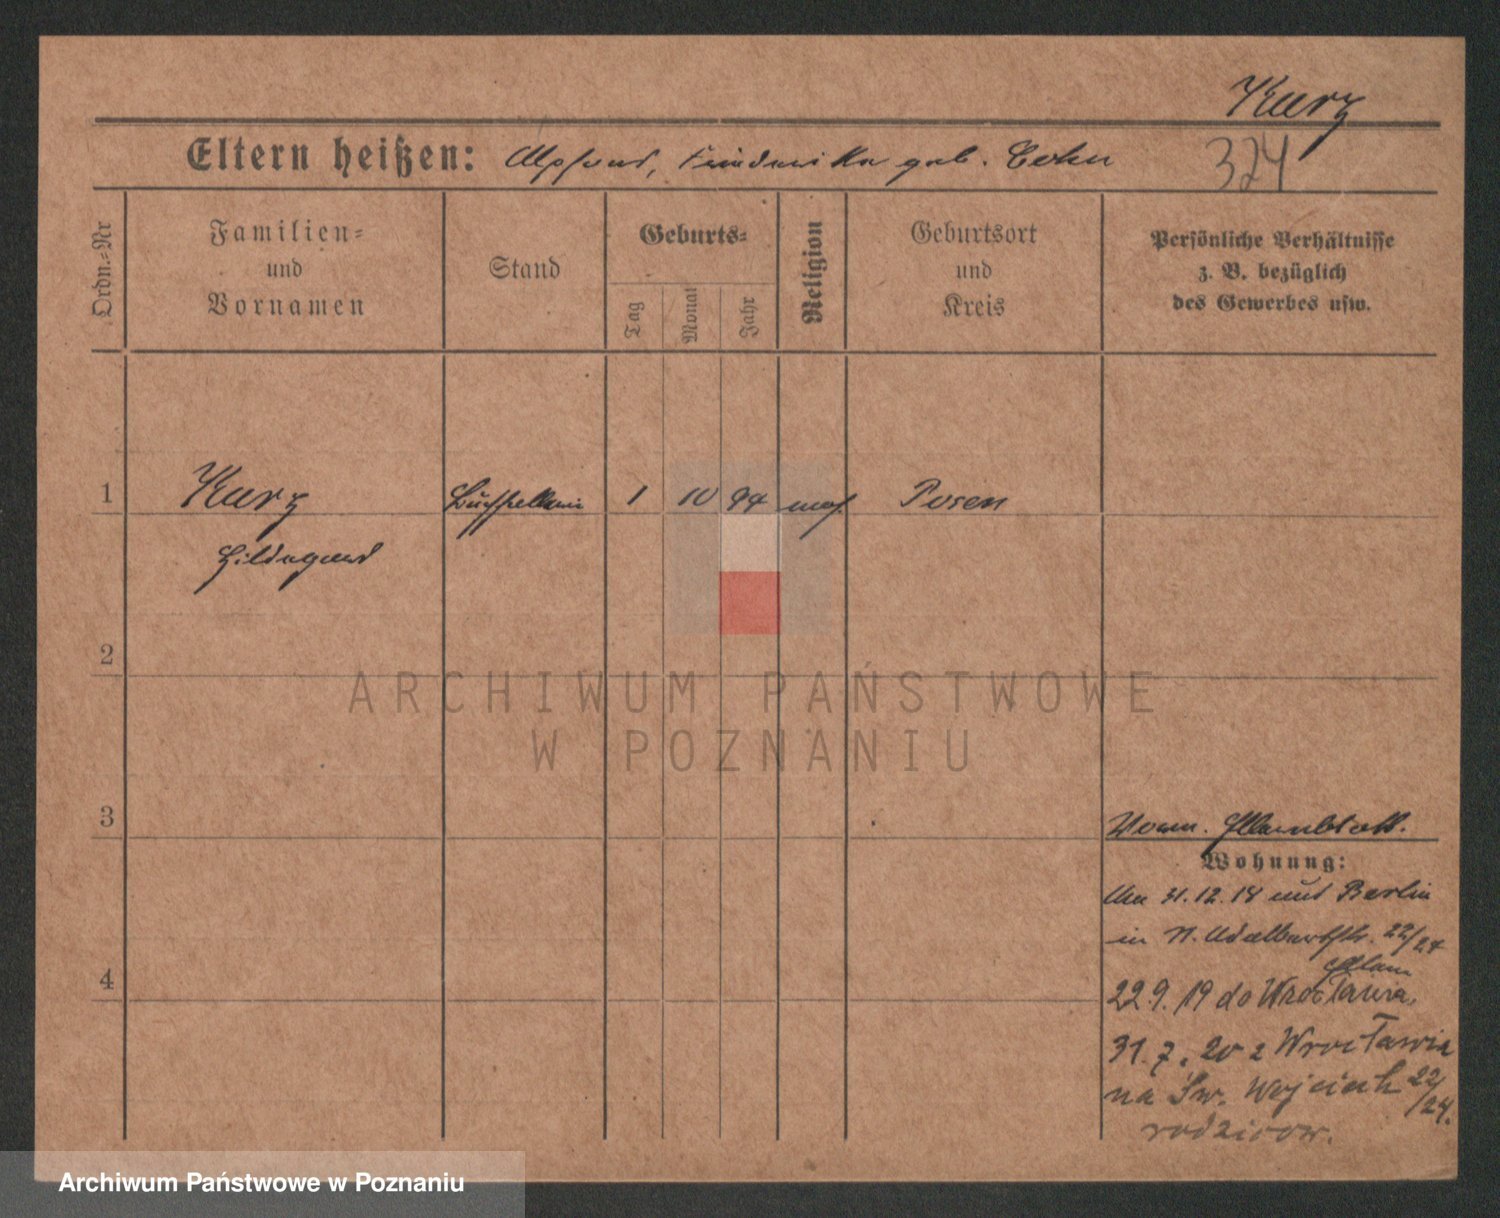 Kurz
Eltern heißen: Alphons, Friederike geb. Cohn
324
Ordn.-Nr
Familien-
und
Vornamen
Stand
Geburts-
Tag
Monat
Jahr
Religion
Geburtsort
und
Kreis
Persönliche Verhältnisse
z. B. bezüglich
des Gewerbes usw.
1
Kurz
Hildegard
1
10
94
mos.
Posen
2
ARCHIWUM PAŃSTWOWE
W POZNANIU
3
Wohnung:
31.12.18 aus Berlin
in St. Adalbertstr. 22/24
22.9.19 do Wrocławia,
31.7.20 z Wrocławia
na Św. Wojciech 22/24.
rodziców.
4
Archiwum Państwowe w Poznaniu